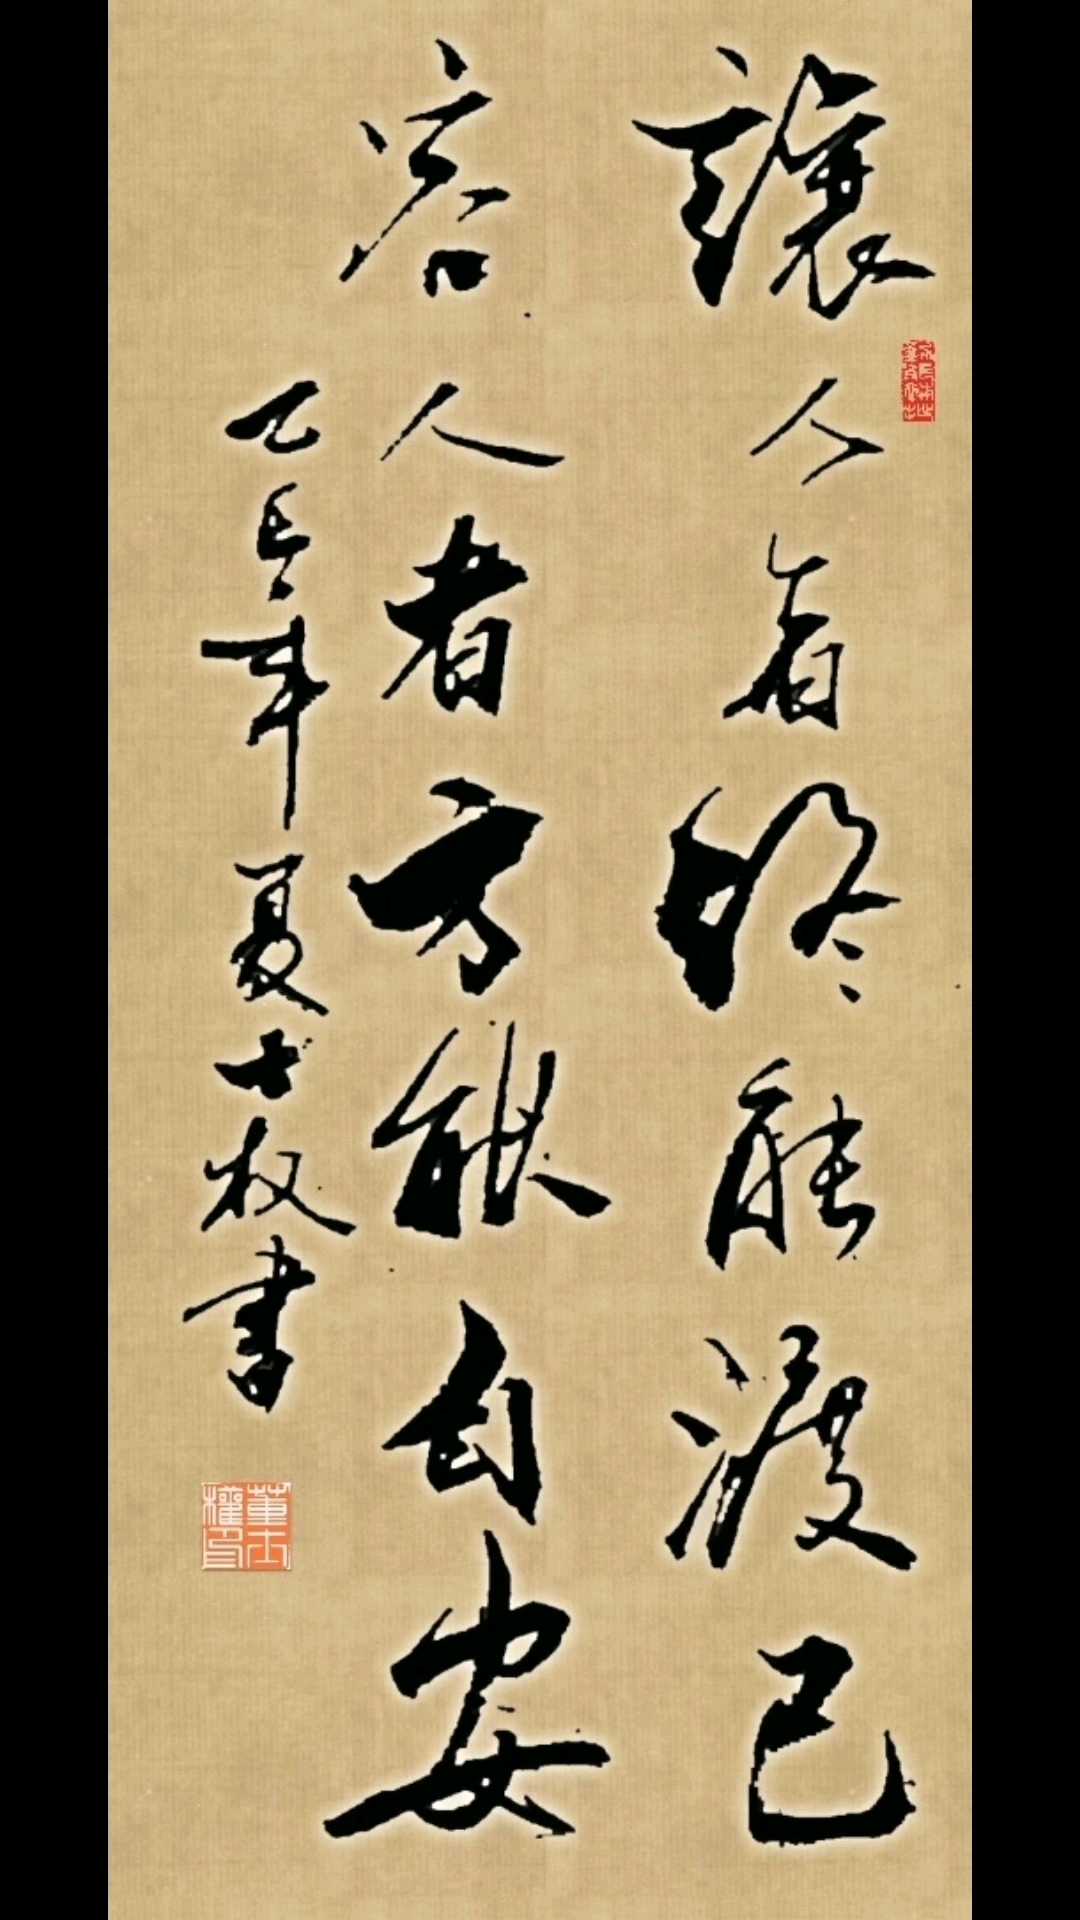 讓人者終能渡己
容人者方能自安
乙巳年夏士权書
董士權印